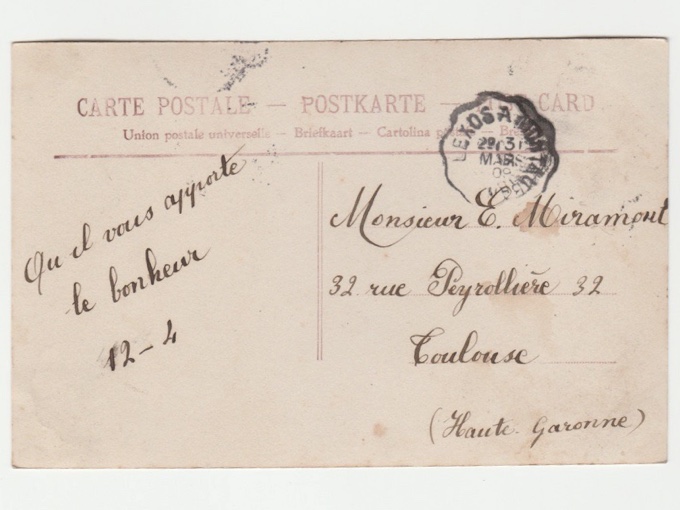 CARTE POSTALE — POSTKARTE — CARD
Union postale universelle — Briefkaart — Cartolina
LEXOS A MONTAUBAN
29 31
MARS
09
Qu'il vous apporte
le bonheur
12-4
Monsieur E. Miramont
32 rue Peyrollière 32
Toulouse
(Haute-Garonne)